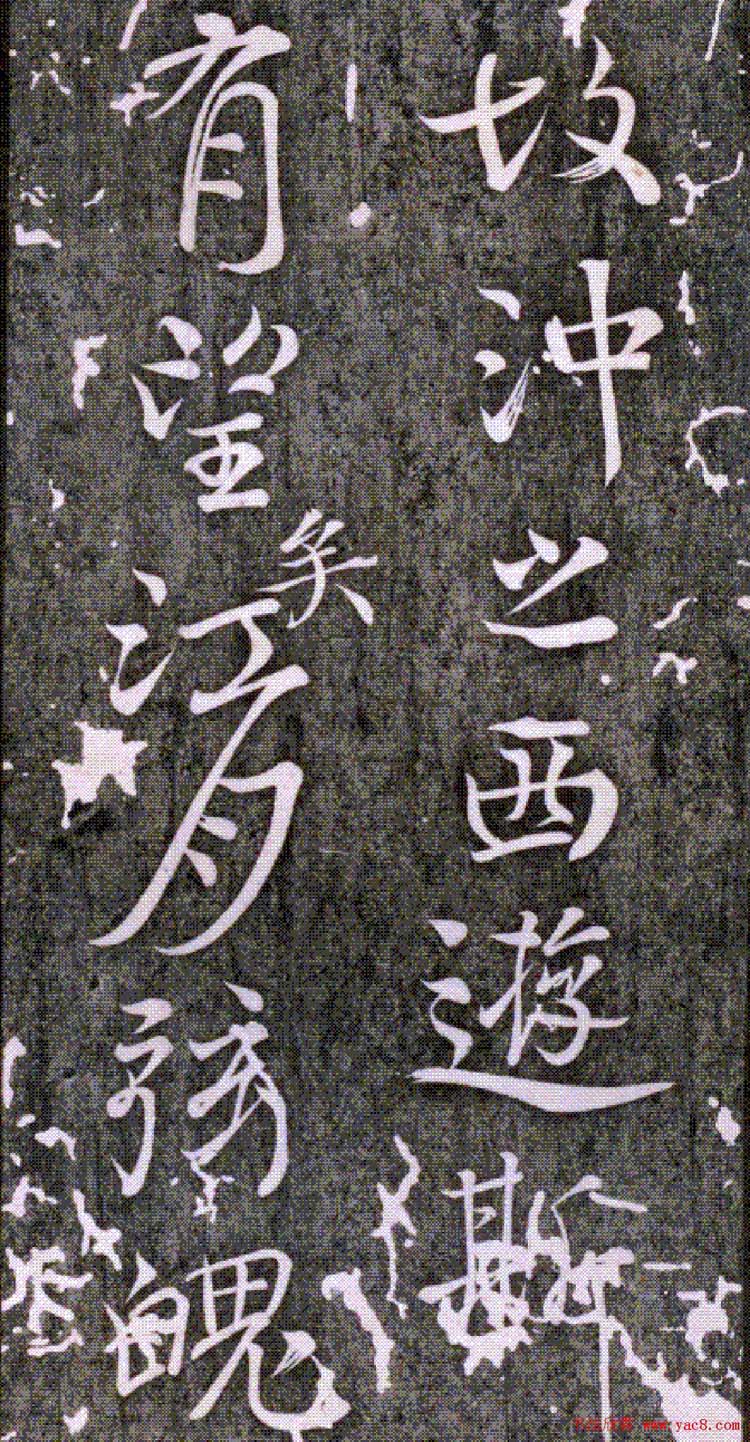 故沖之西遊斯
有望矣江夕弦魄
www.yac8.com